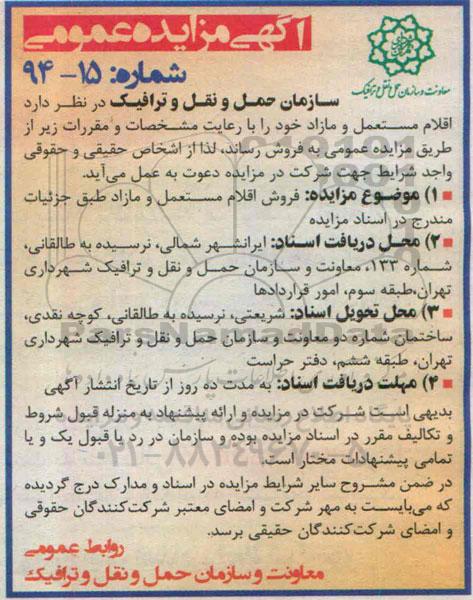 آگهی مزایده عمومی
شماره: ۱۵-۹۴
معاونت و سازمان حمل و نقل و ترافیک
سازمان حمل و نقل و ترافیک در نظر دارد
اقلام مستعمل و مازاد خود را با رعایت مشخصات و مقررات زیر از
طریق مزایده عمومی به فروش رساند، لذا از اشخاص حقیقی و حقوقی
واجد شرایط جهت شرکت در مزایده دعوت به عمل می‌آید.
۱) موضوع مزایده: فروش اقلام مستعمل و مازاد طبق جزئیات
مندرج در اسناد مزایده
۲) محل دریافت اسناد: ایرانشهر شمالی، نرسیده به طالقانی،
شماره ۱۳۳، معاونت و سازمان حمل و نقل و ترافیک شهرداری
تهران،طبقه سوم، امور قراردادها
۳) محل تحویل اسناد: شریعتی، نرسیده به طالقانی، کوچه نقدی،
ساختمان شماره دو معاونت و سازمان حمل و نقل و ترافیک شهرداری
تهران، طبقه ششم، دفتر حراست
۴) مهلت دریافت اسناد: به مدت ده روز از تاریخ انتشار آگهی
بدیهی است شرکت در مزایده و ارائه پیشنهاد به منزله قبول شروط
و تکالیف مقرر در اسناد مزایده بوده و سازمان در رد یا قبول یک و یا
تمامی پیشنهادات مختار است.
در ضمن مشروح سایر شرایط مزایده در اسناد و مدارک درج گردیده
که می‌بایست به مهر شرکت و امضای معتبر شرکت‌کنندگان حقوقی
و امضای شرکت‌کنندگان حقیقی برسد.
روابط عمومی
معاونت و سازمان حمل و نقل و ترافیک
ParsNamadData
۰۲۱-۸۸۳۴۹۶۷۰-۵